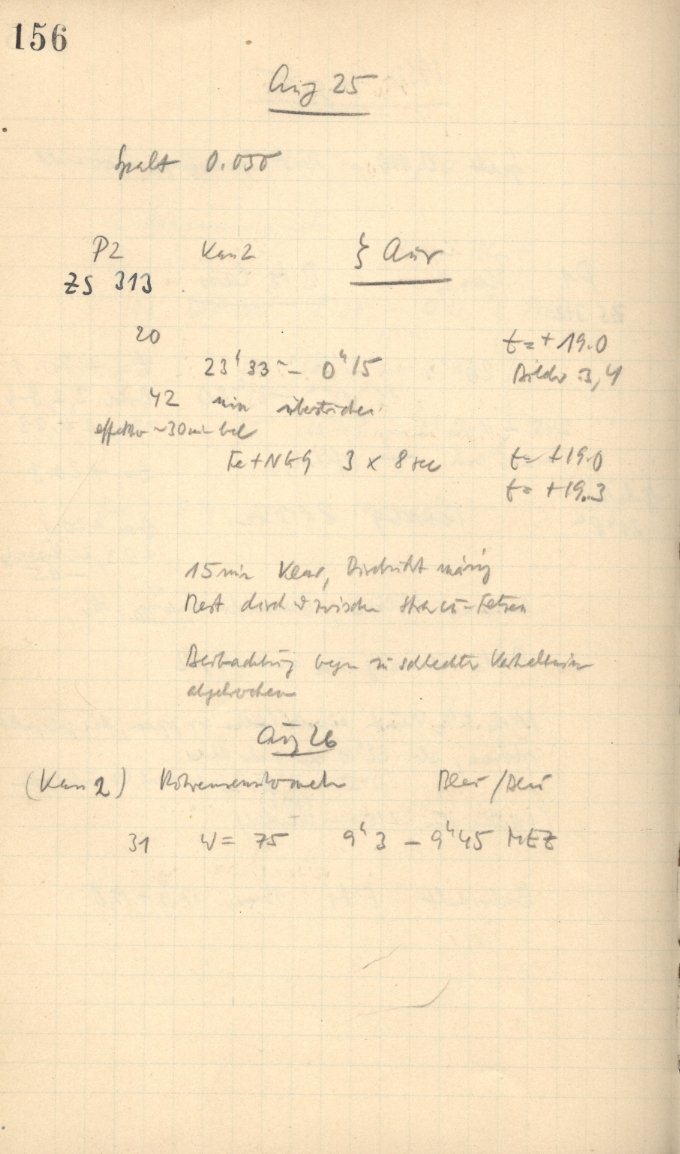 156
Aug 25
Spalt 0.050
P2 Kam 2 ζ Aur
ZS 313
20 t = + 19.0
23h 33m – 0h 15 Bilder 3,4
42 min
effektiv ~30 min bel
Fe+NGG 3 x 8 sec t = +19.0
t = +19.3
15 min klar, Durchsicht mässig
Rest durch zwischen Stratus-Fetzen
Beobachtung wegen zu schlechter Verhältnisse
abgebrochen
Aug 26
(Kam 2) Röhrensensitometer Blau/Blau
31 W = 75 9h 3 – 9h 45 MEZ